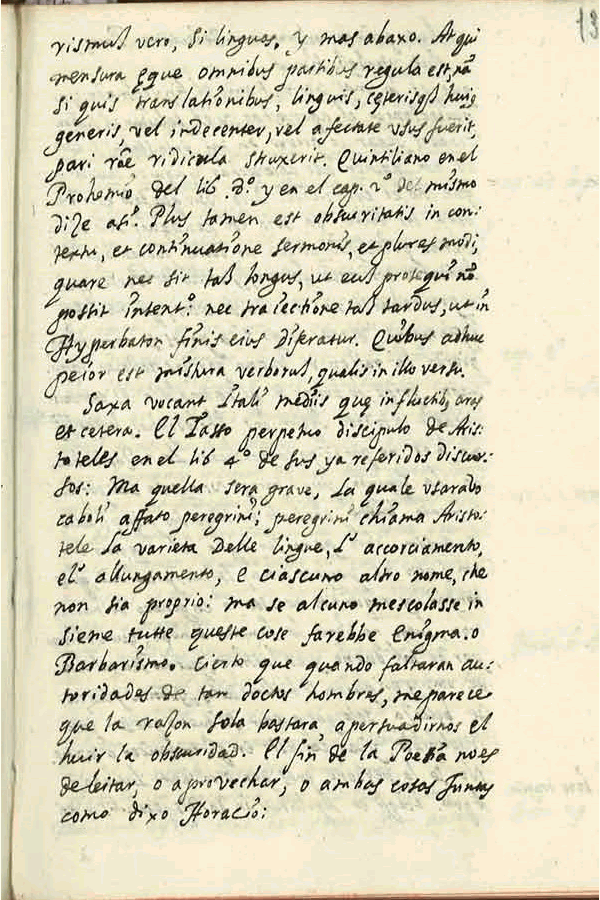 13
rismus vero, si linguas. y mas abaxo. At qui
mensura eque omnibus partibus regula est, nã
si quis translationibus, linguis, ceterisq huiq
generis, vel indecenter, vel afectate usus fuerit,
pari rõe ridicula struxerit. Quintiliano en el
Prohemio del lib. y en el cap. 2º del mismo
dize asi. Plus tamen est obscuritatis in con:
textu, et continuatione sermonis, et plures modi,
quare nec sit tam longus, ut eum prosequi nõ
possit intentº: nec traiectione tam tardus, ut in
Hyperbaton finis eius diferatur. Quibus adhuc
peior est mistura verborum, qualis in illo versu.
Saxa vocant Itali mediis que in fluctib, aras
et cetera. El Tasso perpetuo discipulo de Aris:
toteles en el lib 4º de sus ya referidos discur:
sos: Ma quella sera grave, La quale usarà
caboli affato peregrini; peregrini chiama Aristo:
tele la varieta delle lingue, l' accorciamento,
el' allungamento, e ciascuno altro nome, che
non sia proprio: ma se alcuno mescolasse in
sieme tutte queste cose farebbe Enigma. o
Barbarismo. Cierto que quando faltaran au:
toridades de tan doctos hombres, me parece
que la razon sola bastara, a persuadirnos el
huir la obscuridad. El fin de la Poesia no es
deleitar, o aprovechar, o ambas cosas Juntas
como dixo Horacio: